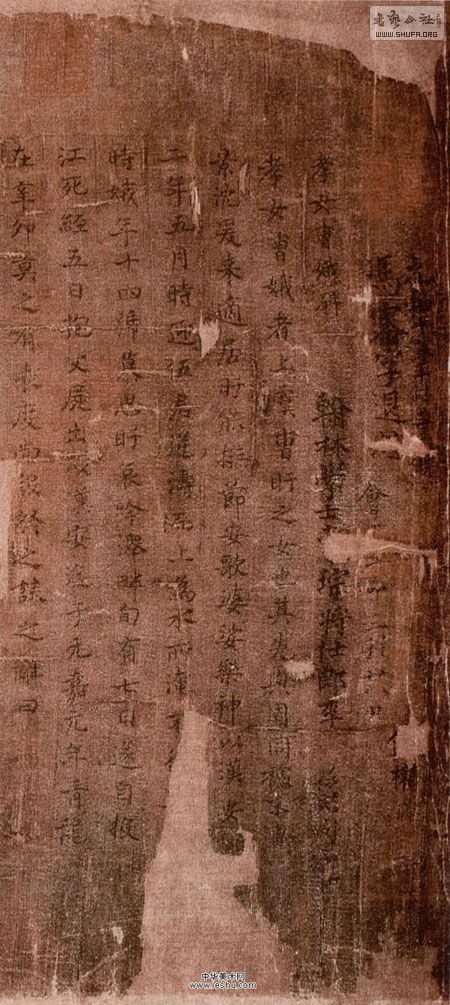 書藝公社
WWW.SHUFA.ORG
孝女曹娥碑
翰林學士 將仕郎
孝女曹娥者上虞曹盱之女也其先與周同祖末
沈爰來適居盱能撫節安歌婆娑樂神以漢安
二年五月時迎伍君逆濤而上為水所淹不
時娥年十四號慕思盱哀吟澤畔旬有七日遂自投
江死經五日抱父屍出以漢安迄于元嘉元年青龍
在辛卯莫之有表度尚設祭之誄之辭曰
中华美术网
www.ieshu.com